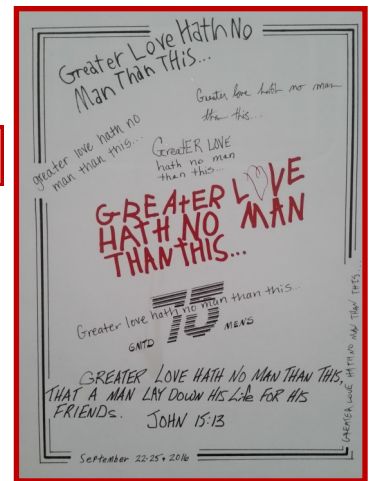 Greater Love Hath No
Man Than THIS...
Greater love hath no man
than this...
greater love hath no
man than this...
GreatER LOVE
hath no man
than this...
GREAtER LOVE
HATH NO MAN
THAN tHIS...
Greater love hath no man than this...
75
GMTD MENS
GREATER LOVE HATH NO MAN THAN THIS,
THAT A MAN LAY DOWN HIS Life FOR HIS
FRIENDS. JOHN 15:13
GREATER LOVE HATH NO MAN THAN THIS...
September 22-25, 2016